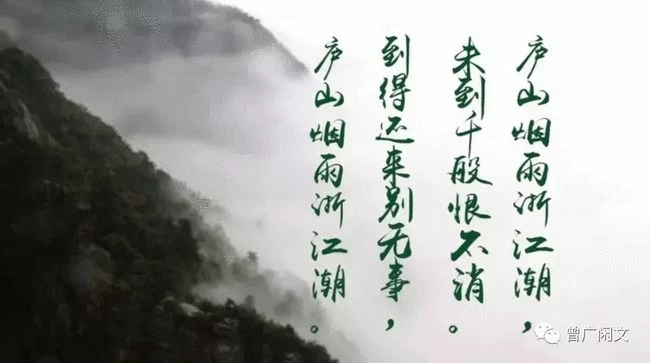 庐山烟雨浙江潮，
未到千般恨不消。
到得还来别无事，
庐山烟雨浙江潮。
曾广闲文